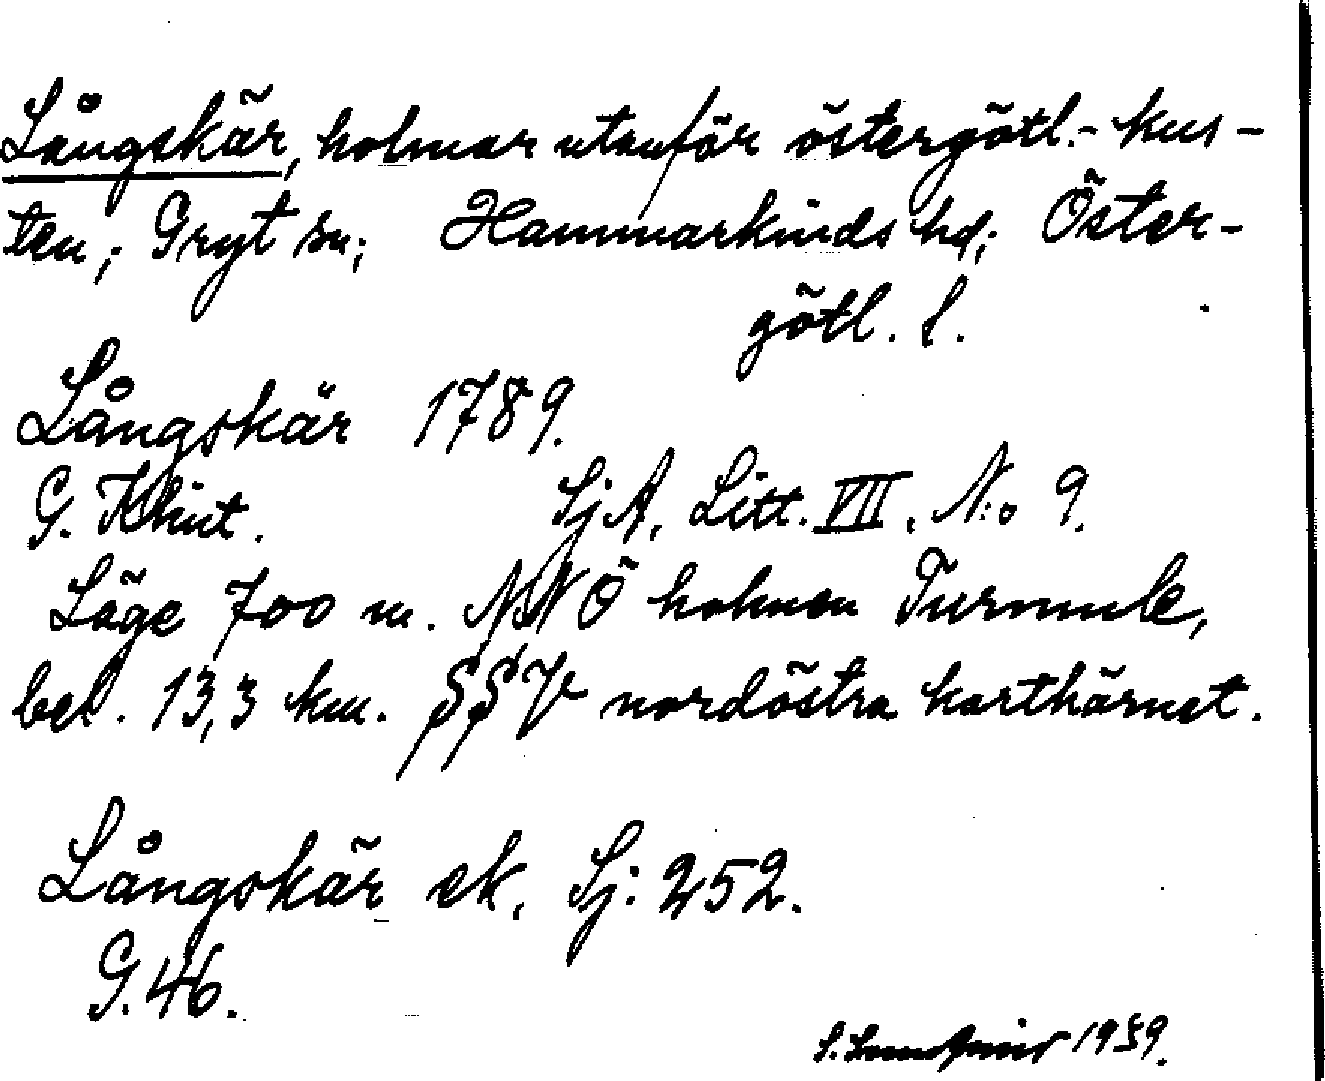 Långskär, holmar utanför östergötl.- kus-
ten; Gryt sn; Hammarkinds hd; Öster-
götl. l.
Långskär 1789.
G. Klint. SjA, Litt. VII, N:o 9.
Läge 700 m. NNÖ holmen Turmule,
bel. 13,3 km. SSV nordöstra karthörnet.
Långskär ek. Sj: 252.
G. 46.
S. 1939.